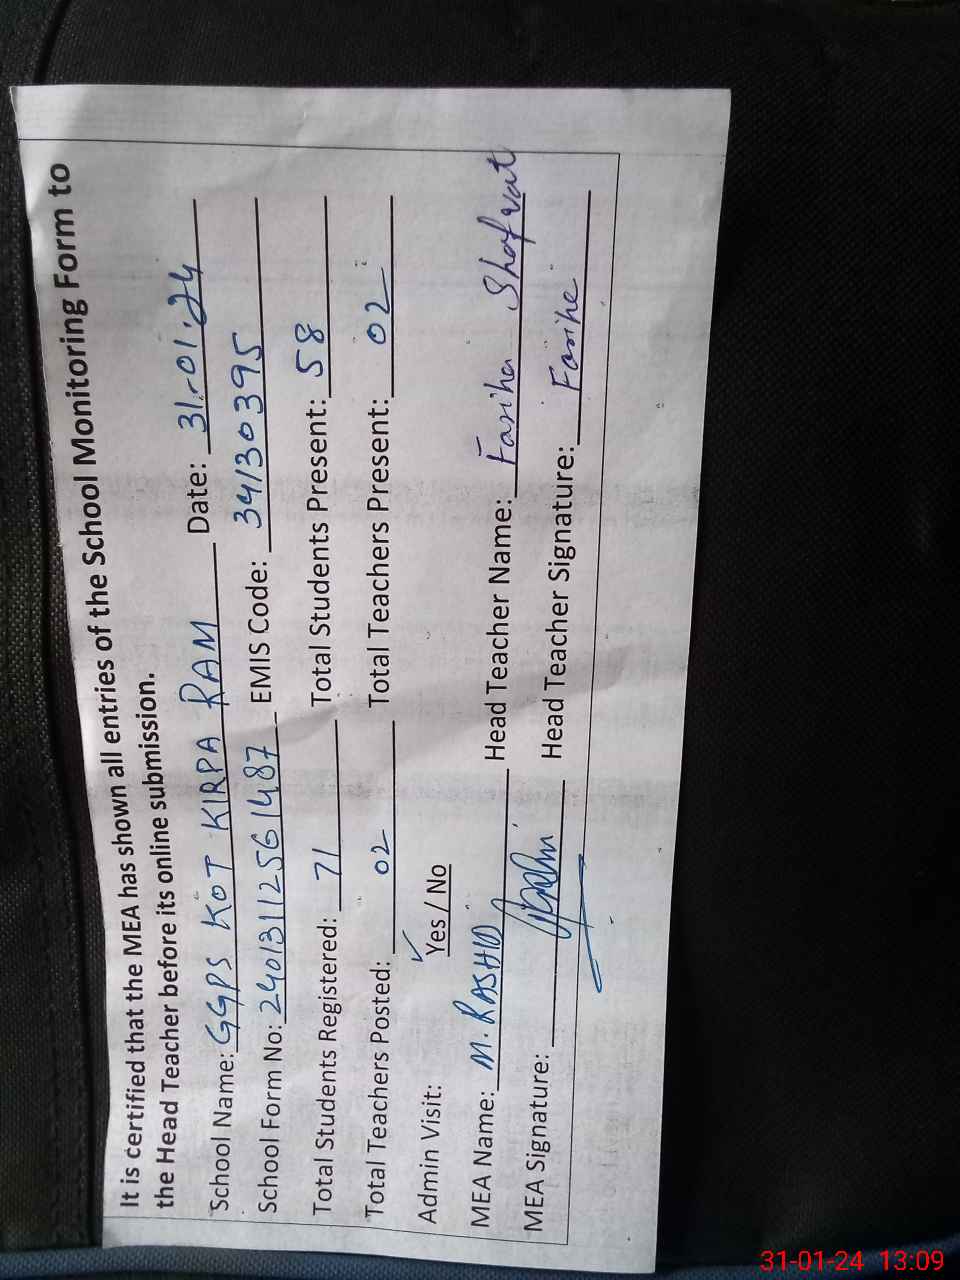 It is certified that the MEA has shown all entries of the School Monitoring Form to
the Head Teacher before its online submission.
School Name: GGPS KOT KIRPA RAM Date: 31-01-24
School Form No: 24013112561487 EMIS Code: 34130395
Total Students Registered: 71 Total Students Present: 58
Total Teachers Posted: 02 Total Teachers Present: 02
Admin Visit: Yes / No
MEA Name: M. RASHID Head Teacher Name: Fariha Shafqat
MEA Signature: Head Teacher Signature: Fariha
31-01-24 13:09